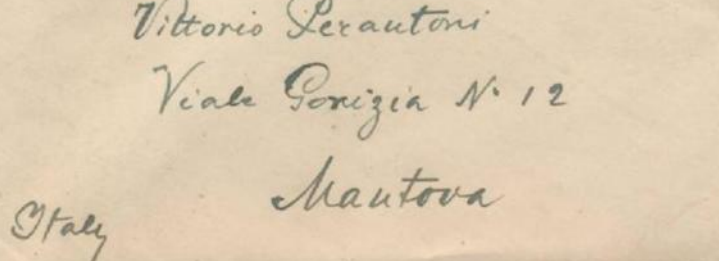 Vittorio Perantoni
Viale Gorizia N. 12
Mantova
Italy